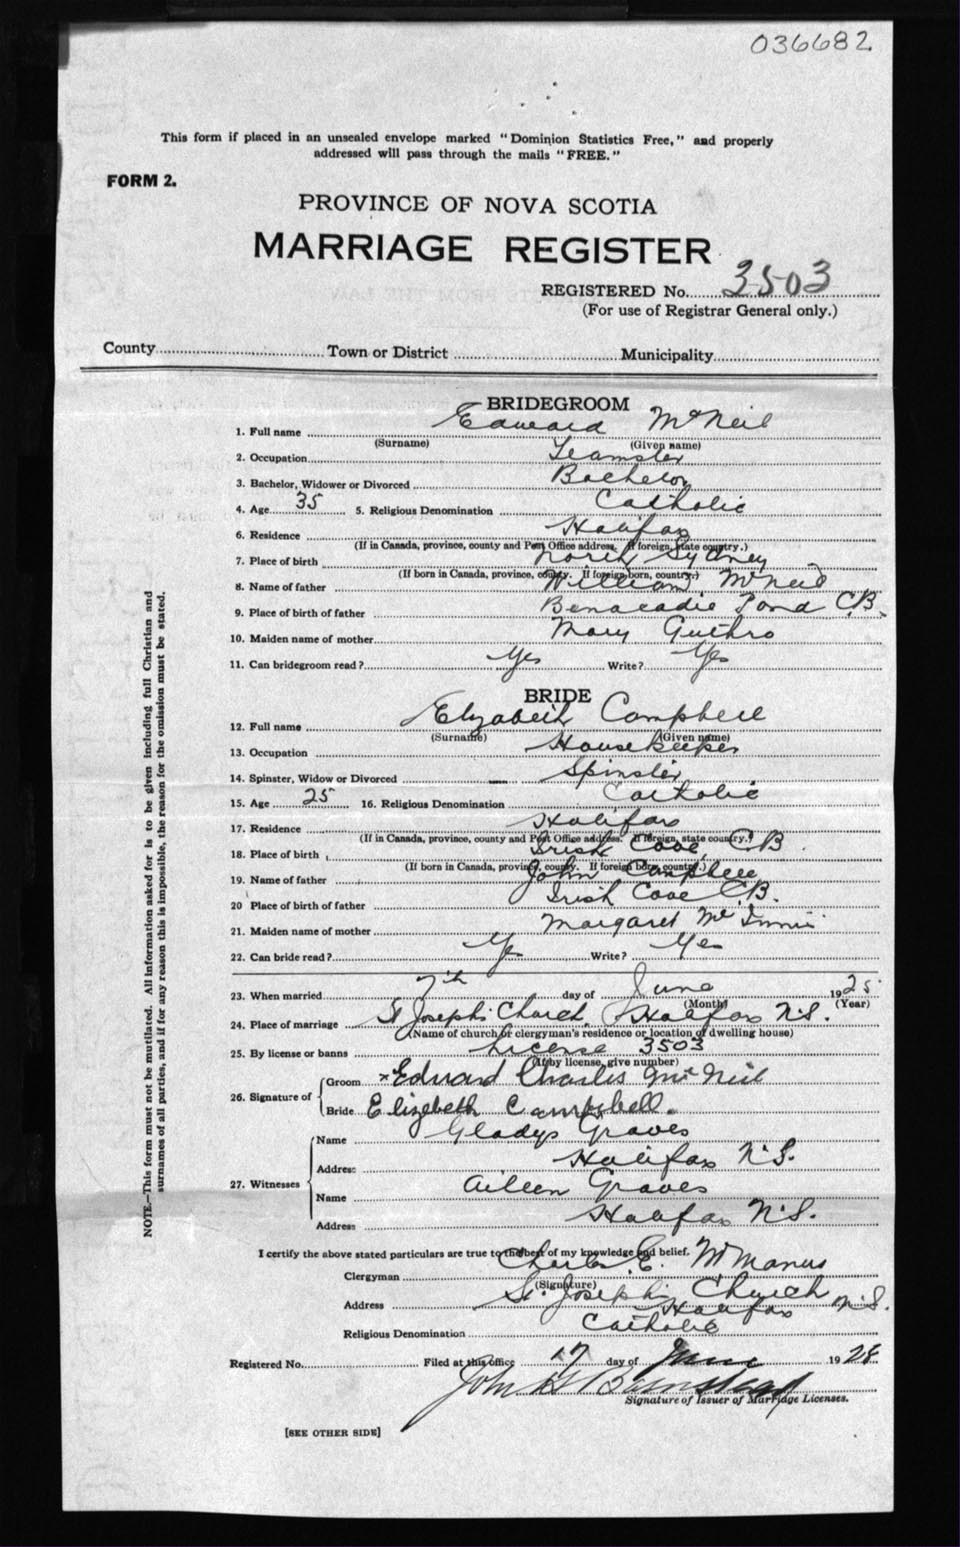 036682
This form if placed in an unsealed envelope marked "Dominion Statistics Free," and properly
addressed will pass through the mails "FREE."
FORM 2.
PROVINCE OF NOVA SCOTIA
MARRIAGE REGISTER
REGISTERED No. 3503
(For use of Registrar General only.)
County Town or District Municipality
BRIDEGROOM
1. Full name Edward McNeil
(Surname) (Given name)
2. Occupation Teamster
3. Bachelor, Widower or Divorced Bachelor
4. Age 35 5. Religious Denomination Catholic
6. Residence Halifax
(If in Canada, province, county and Post Office address. If foreign, state country.)
7. Place of birth North Sydney
(If born in Canada, province, county. If foreign born, country.)
8. Name of father William McNeil
9. Place of birth of father Benacadie Pond C.B.
10. Maiden name of mother Mary Guthro
11. Can bridegroom read? Yes Write? Yes
BRIDE
12. Full name Elizabeth Campbell
(Surname) (Given name)
13. Occupation Housekeeper
14. Spinster, Widow or Divorced Spinster
15. Age 25 16. Religious Denomination Catholic
17. Residence Halifax
(If in Canada, province, county and Post Office address. If foreign, state country.)
18. Place of birth Irish Cove, CB
(If born in Canada, province, county. If foreign born, country.)
19. Name of father John Campbell
20 Place of birth of father Irish Cove C.B.
21. Maiden name of mother Margaret McInnis
22. Can bride read? Yes Write? Yes
23. When married 7th day of June 1925
(Month) (Year)
24. Place of marriage St Joseph's Church, Halifax N.S.
(Name of church or clergyman's residence or location of dwelling house)
25. By license or banns License 3503
(If by license, give number)
26. Signature of
Groom x Edward Charles McNeil
Bride Elizebeth Campbell.
27. Witnesses
Name Gladys Graves
Address Halifax N.S.
Name Aileen Graves
Address Halifax N.S.
I certify the above stated particulars are true to the best of my knowledge and belief.
Clergyman Charles E. McManus
(Signature)
Address St. Joseph's Church
Halifax N.S.
Religious Denomination Catholic
Registered No. Filed at this office 17 day of June 19
John
Signature of Issuer of Marriage Licenses.
[SEE OTHER SIDE]
NOTE.—This form must not be mutilated. All information asked for is to be given including full Christian and
surnames of all parties, and if for any reason this is impossible, the reason for the omission must be stated.